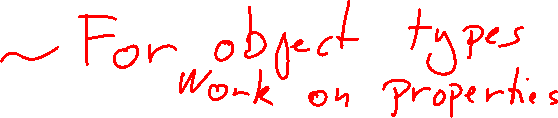 ~ For object types
Work on properties